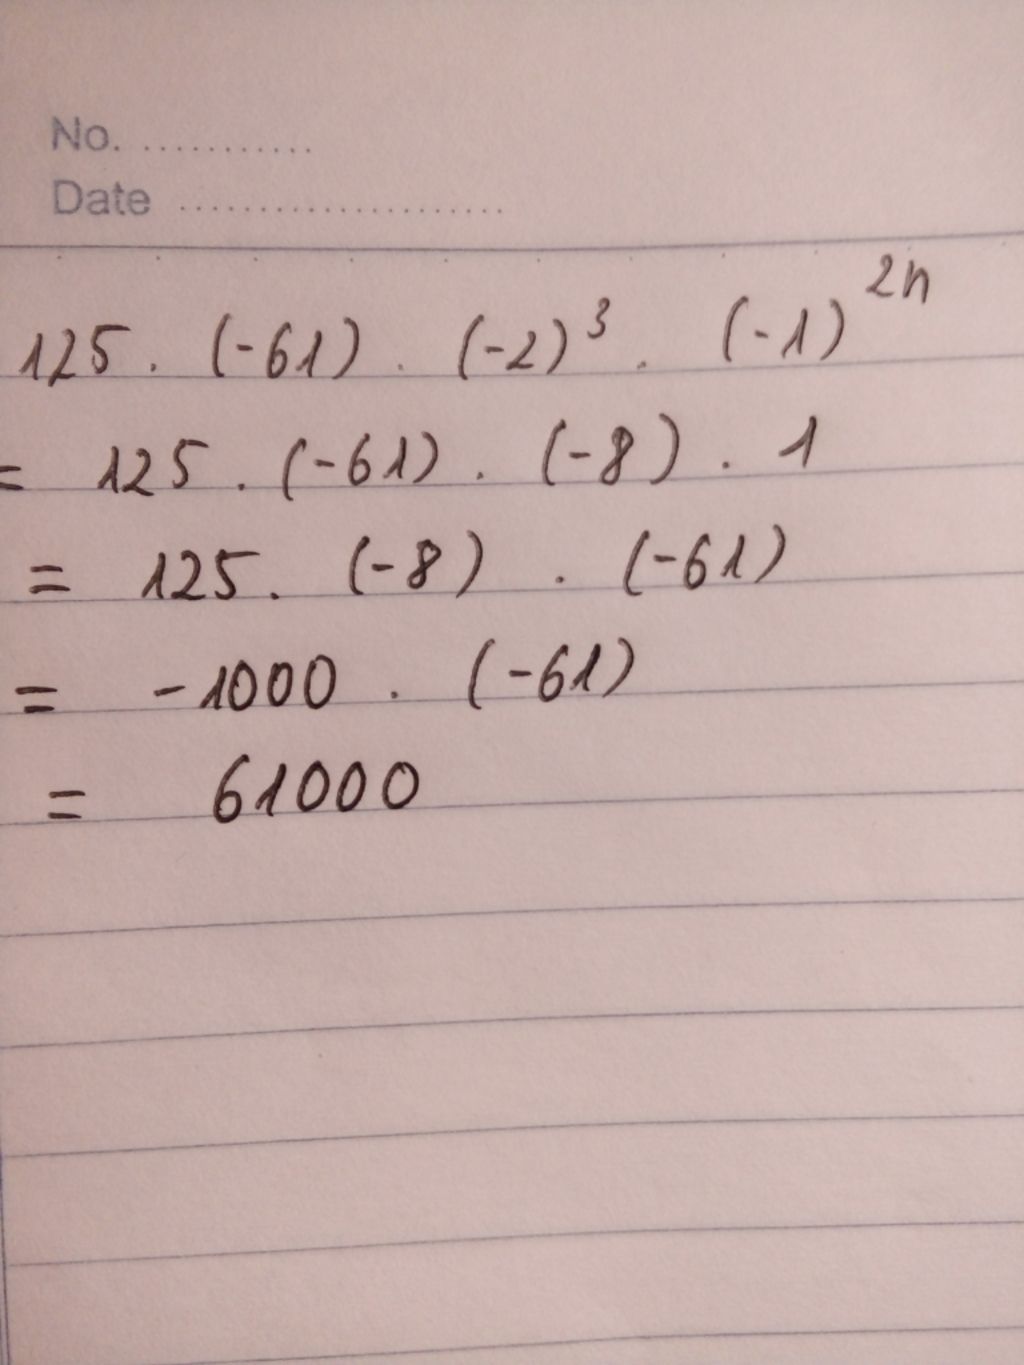 No. ...........
Date .....................
125 . (-61) . (-2)³ . (-1)²ⁿ
= 125 . (-61) . (-8) . 1
= 125 . (-8) . (-61)
= -1000 . (-61)
= 61000